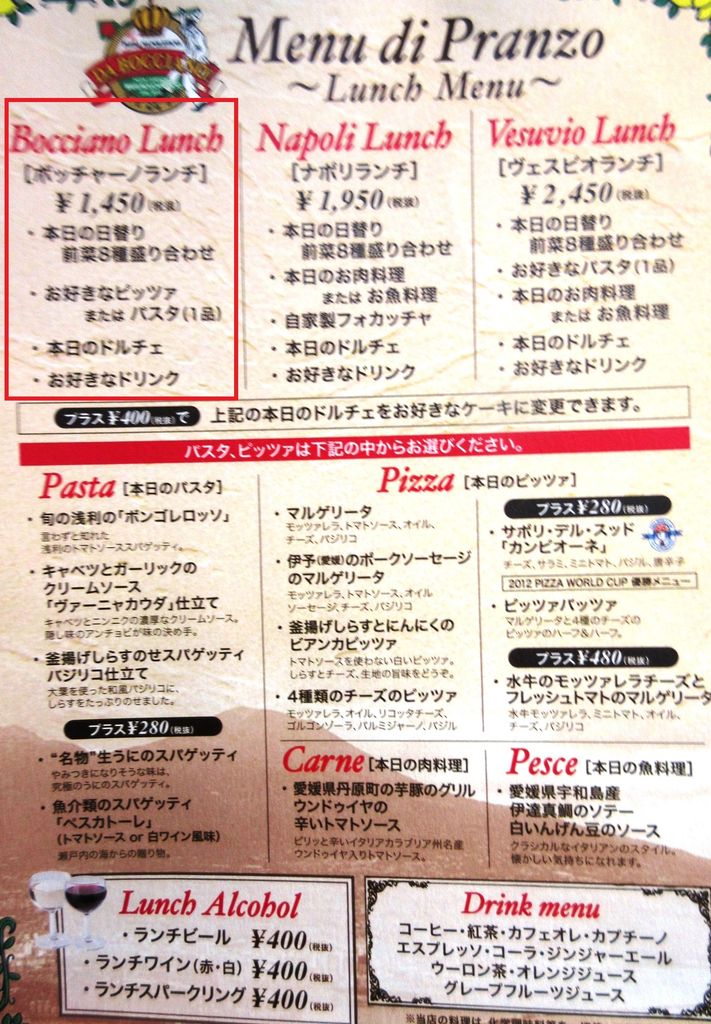 DA BOCCIANO
Menu di Pranzo
～Lunch Menu～
Bocciano Lunch
[ボッチャーノランチ]
¥1,450(税抜)
・本日の日替り
前菜8種盛り合わせ
・お好きなピッツァ
または パスタ(1品)
・本日のドルチェ
・お好きなドリンク
Napoli Lunch
[ナポリランチ]
¥1,950(税抜)
・本日の日替り
前菜8種盛り合わせ
・本日のお肉料理
または お魚料理
・自家製フォカッチャ
・本日のドルチェ
・お好きなドリンク
Vesuvio Lunch
[ヴェスビオランチ]
¥2,450(税抜)
・本日の日替り
前菜8種盛り合わせ
・お好きなパスタ(1品)
・本日のお肉料理
または お魚料理
・本日のドルチェ
・お好きなドリンク
プラス¥400(税抜)で 上記の本日のドルチェをお好きなケーキに変更できます。
パスタ、ピッツァは下記の中からお選びください。
Pasta [本日のパスタ]
・旬の浅利の「ボンゴレロッソ」
言わずと知れた
浅利のトマトソーススパゲッティ。
・キャベツとガーリックの
クリームソース
「ヴァーニャカウダ」仕立て
キャベツとニンニクの濃厚なクリームソース。
隠し味のアンチョビが味の決め手。
・釜揚げしらすのせスパゲッティ
バジリコ仕立て
大葉を使った和風バジリコに、
しらすをたっぷりのせました。
プラス¥280(税抜)
・“名物”生うにのスパゲッティ
やみつきになりそうな味は、
究極のうにのスパゲッティ。
・魚介類のスパゲッティ
「ペスカトーレ」
(トマトソース or 白ワイン風味)
瀬戸内の海からの贈り物。
Pizza [本日のピッツァ]
・マルゲリータ
モッツァレラ、トマトソース、オイル、
チーズ、バジリコ
・伊予(愛媛)のポークソーセージ
のマルゲリータ
モッツァレラ、トマトソース、オイル
ソーセージ、チーズ、バジリコ
・釜揚げしらすとにんにくの
ビアンカピッツァ
トマトソースを使わない白いピッツァ。
しらすとチーズ、生地の旨味をどうぞ。
・4種類のチーズのピッツァ
モッツァレラ、オイル、リコッタチーズ、
ゴルゴンゾーラ、パルミジャーノ、バジル
プラス¥280(税抜)
・サポリ・デル・スッド
「カンピオーネ」
チーズ、サラミ、ミニトマト、バジル、唐辛子
2012 PIZZA WORLD CUP 優勝メニュー
・ピッツァパッツァ
マルゲリータと4種のチーズの
ピッツァのハーフ&ハーフ。
プラス¥480(税抜)
・水牛のモッツァレラチーズと
フレッシュトマトのマルゲリータ
水牛モッツァレラ、ミニトマト、オイル、
チーズ、バジリコ
Carne [本日の肉料理]
・愛媛県丹原町の芋豚のグリル
ウンドゥイヤの
辛いトマトソース
ピリッと辛いイタリアカラブリア州名産
ウンドゥイヤ入りトマトソース。
Pesce [本日の魚料理]
・愛媛県宇和島産
伊達真鯛のソテー
白いんげん豆のソース
クラシカルなイタリアンのスタイル。
懐かしい気持ちになれます。
Lunch Alcohol
・ランチビール ¥400(税抜)
・ランチワイン(赤・白) ¥400(税抜)
・ランチスパークリング ¥400(税抜)
Drink menu
コーヒー・紅茶・カフェオレ・カプチーノ
エスプレッソ・コーラ・ジンジャーエール
ウーロン茶・オレンジジュース
グレープフルーツジュース
※当店の料理は、化学調味料等を